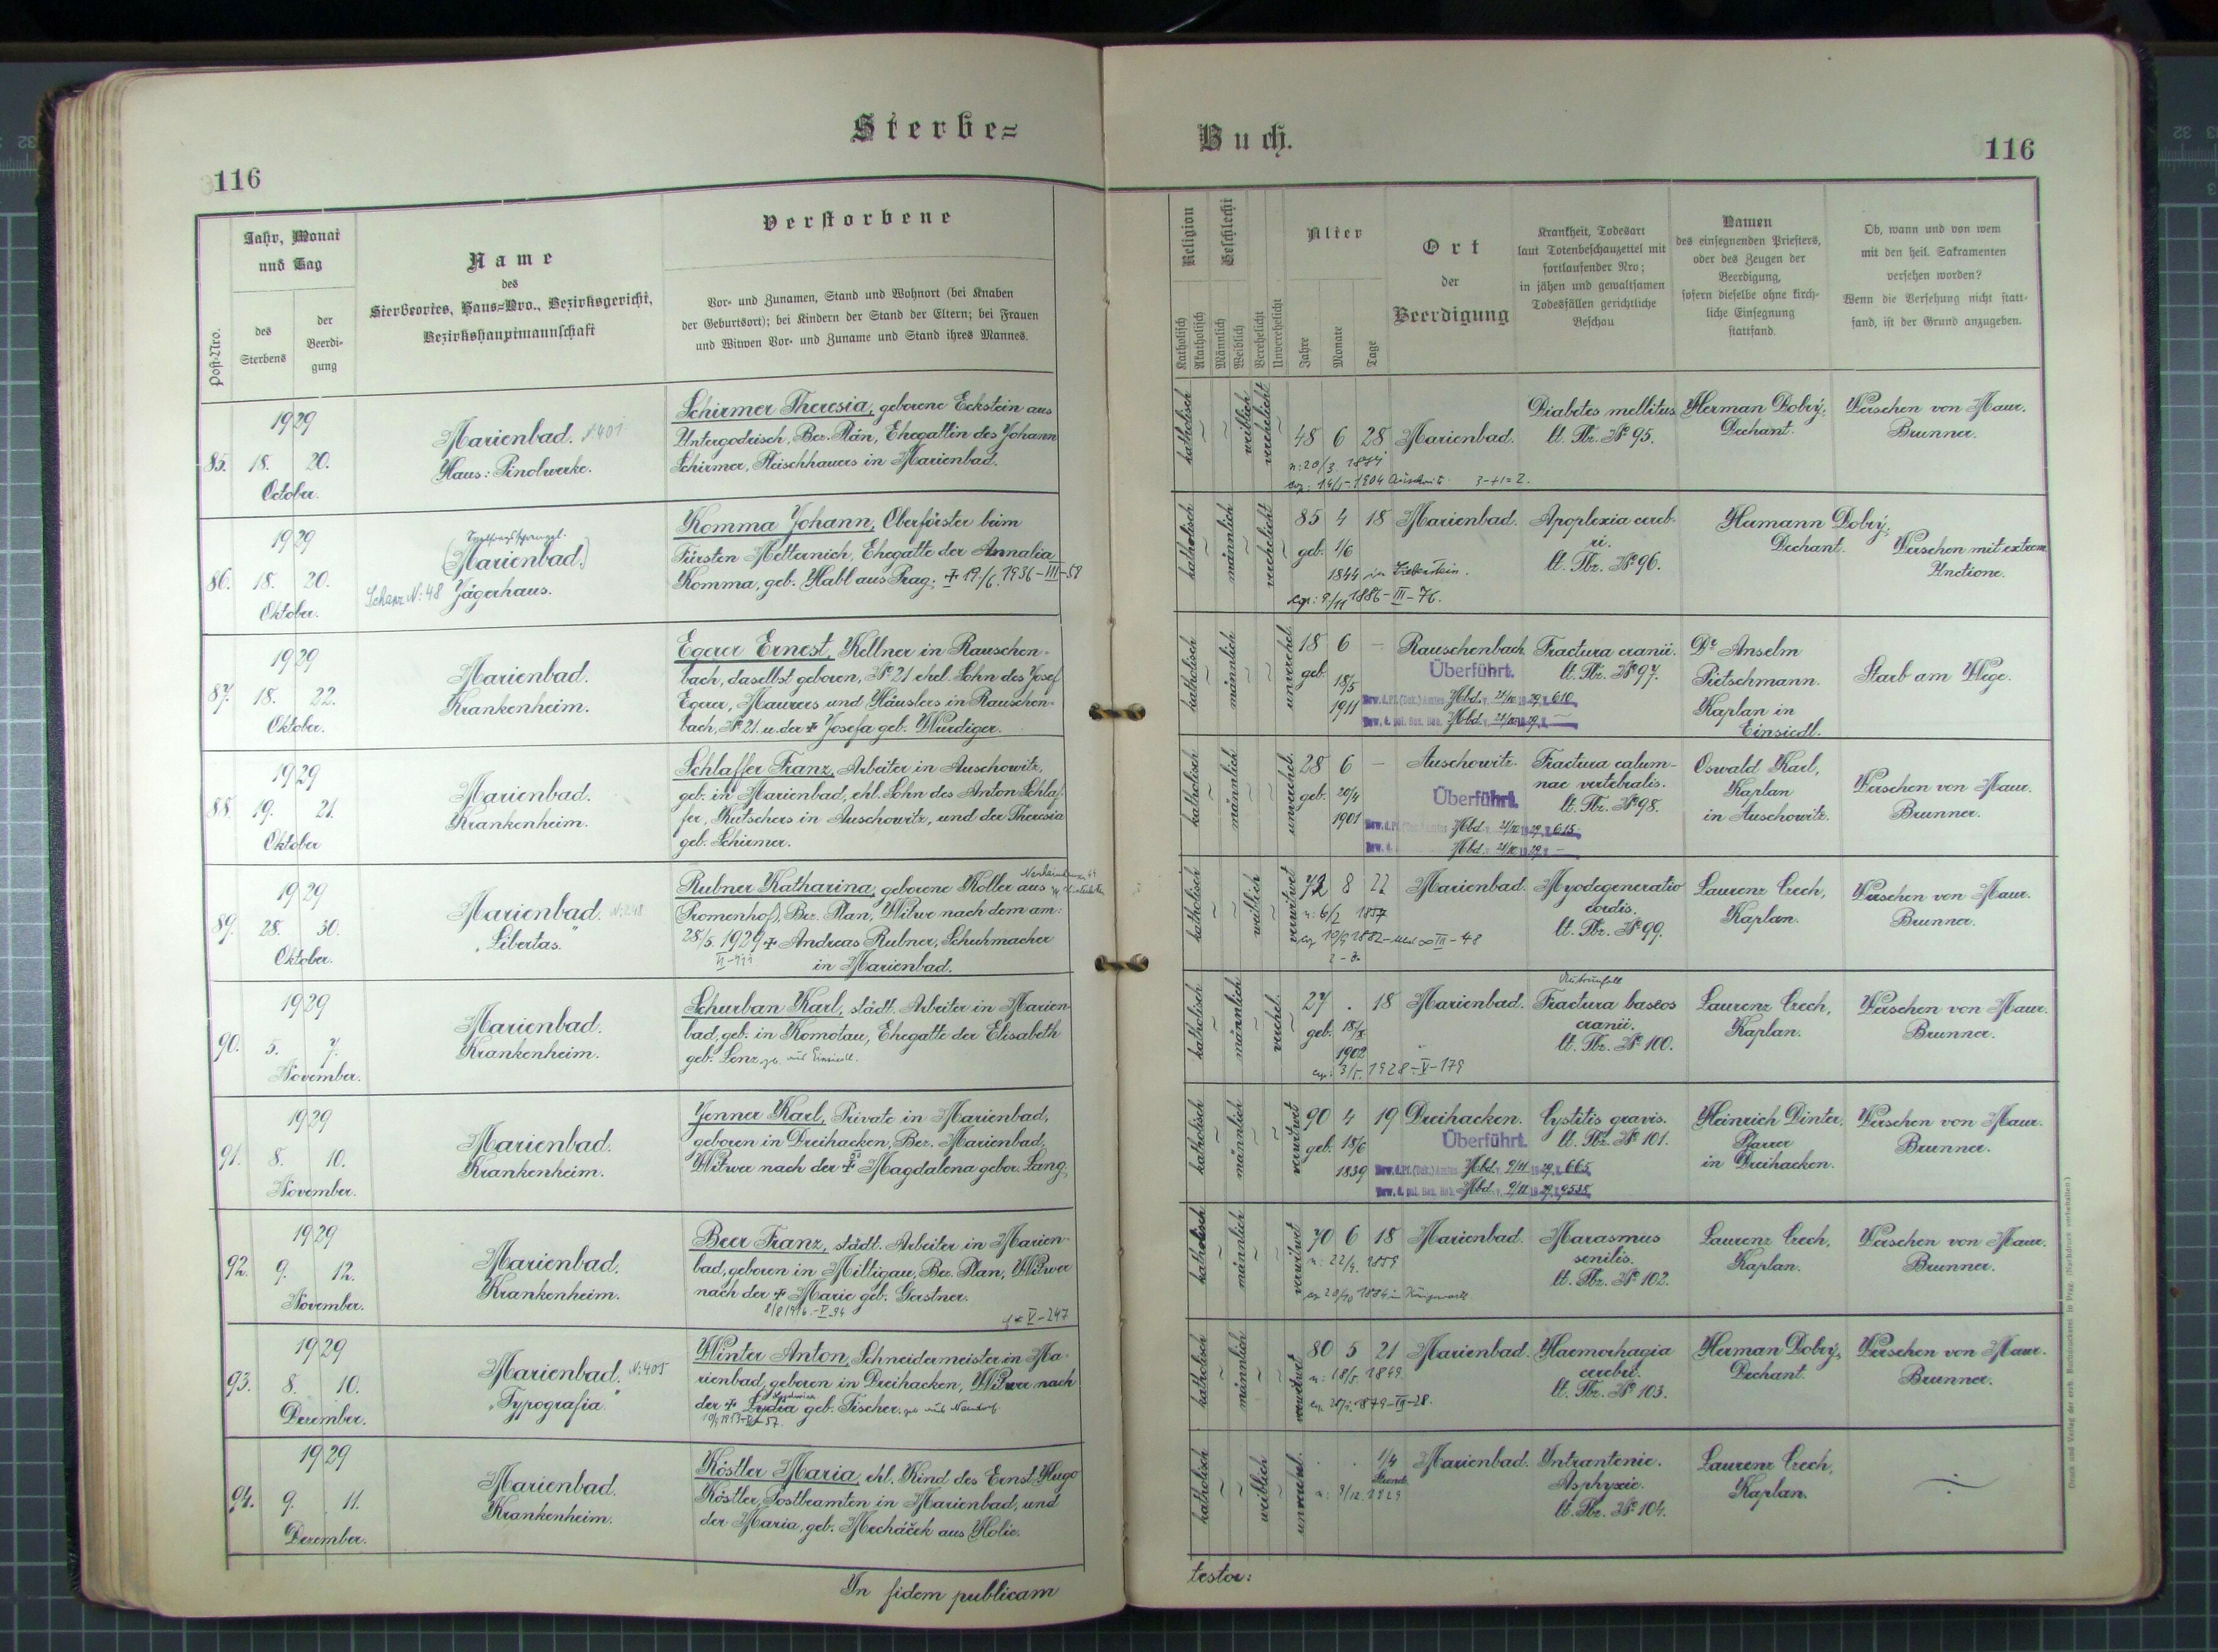 Sterbe=
Buch.
116
116
Post-Nro.
Jahr, Monat
und Tag
des
Sterbens
der
Beerdi-
gung
Name
des
Sterbeortes, Haus-Nro., Bezirksgericht,
Bezirkshauptmannschaft
Verstorbene
Vor- und Zunamen, Stand und Wohnort (bei Knaben
der Geburtsort); bei Kindern der Stand der Eltern; bei Frauen
und Witwen Vor- und Zuname und Stand ihres Mannes.
Religion
Katholisch
Akatholisch
Geschlecht
Männlich
Weiblich
Verehelicht
Unverehelicht
Alter
Jahre
Monate
Tage
Ort
der
Beerdigung
Krankheit, Todesart
laut Totenbeschauzettel mit
fortlaufender Nro;
in jähen und gewaltsamen
Todesfällen gerichtliche
Beschau
Namen
des einsegnenden Priesters,
oder des Zeugen der
Beerdigung,
sofern dieselbe ohne kirch-
liche Einsegnung
stattfand.
Ob, wann und von wem
mit den heil. Sakramenten
versehen worden?
Wenn die Versehung nicht statt-
fand, ist der Grund anzugeben.
85.
1929
18. 20.
October.
Marienbad. N:401
Haus: Pinolwerke.
Schirmer Theresia, geborene Eckstein aus
Untergodrisch, Bez. Plan, Ehegattin des Johann
Schirmer, Fleischhauers in Marienbad.
katholisch
weiblich
verehelicht
48 6 28
n: 20/3
Marienbad.
Diabetes mellitus
lt. Tbz. No 95.
Herman Dobrý,
Dechant.
Versehen von Maur.
Brunner.
86.
1929
18. 20.
Oktober.
(Marienbad.)
Schanz N: 48 Jägerhaus.
Komma Johann, Oberförster beim
Fürsten Metternich, Ehegatte der Annalia
Komma, geb. Habl aus Prag. + 19./6. 1936-III-59
katholisch
männlich
verehelicht
85 4 18
geb. 1/6
1844 in
cop: 9/11 1886-III-76.
Marienbad.
Apoplexia cereb-
ri.
lt. Tbz. No 96.
Hermann Dobrý,
Dechant.
Versehen mit extrem.
Unctione.
87.
1929
18. 22.
Oktober.
Marienbad.
Krankenheim.
Egerer Ernest, Kellner in Rauschen-
bach, daselbst geboren, No 21 ehel. Sohn des Josef
Egerer, Maurers und Häuslers in Rauschen-
bach, No 21. u. der + Josefa geb. Würdiger.
katholisch
männlich
unverehel.
18 6 –
geb. 18/5
1911
Rauschenbach
Überführt.
Fractura cranii.
lt. Tbz. No 97.
Dr Anselm
Pietschmann.
Kaplan in
Einsiedl.
Starb am Wege.
88.
1929
19. 21.
Oktober
Marienbad.
Krankenheim.
Schlaffer Franz, Arbeiter in Auschowitz,
geb. in Marienbad, ehl. Sohn des Anton Schlaf-
fer, Kutschers in Auschowitz, und der Theresia
geb. Schirmer.
katholisch
männlich
unverehel.
28 6 –
geb. 20/4
1901
Auschowitz.
Überführt.
Fractura calum-
nae vertebralis.
lt. Tbz. No 98.
Oswald Karl,
Kaplan
in Auschowitz.
Versehen von Maur.
Brunner.
89.
1929
28. 30.
Oktober.
Marienbad.
„Libertas."
Rubner Katharina, geborene Koller aus
(Promenhof), Bez. Plan, Witwe nach dem am:
28/5. 1929 + Andreas Rubner, Schuhmacher
in Marienbad.
katholisch
weiblich
verwitwet
72 8 22
n: 6/2 1857
Marienbad.
Myodegeneratio
cordis.
lt. Tbz. No 99.
Laurenz Czech,
Kaplan.
Versehen von Maur.
Brunner.
90.
1929
5. 7.
November.
Marienbad.
Krankenheim.
Schurban Karl, städt. Arbeiter in Marien-
bad, geb. in Komotau, Ehegatte der Elisabeth
geb. Lenz, geb. aus Einsiedl.
katholisch
männlich
verehel.
27 . 18
geb. 18/X
1902
cop: 3/5. 1928-V-179
Marienbad.
Autounfall
Fractura baseos
cranii.
lt. Tbz. No 100.
Laurenz Czech,
Kaplan.
Versehen von Maur.
Brunner.
91.
1929
8. 10.
November.
Marienbad.
Krankenheim.
Jenner Karl, Private in Marienbad,
geboren in Dreihacken, Bez. Marienbad,
Witwer nach der + Magdalena gebor. Lang.
katholisch
männlich
verwitwet
90 4 19
geb. 18/6
1839
Dreihacken.
Überführt.
Cystitis gravis.
lt. Tbz. No 101.
Heinrich Dinter,
Pfarrer
in Dreihacken.
Versehen von Maur.
Brunner.
92.
1929
9. 12.
November.
Marienbad.
Krankenheim.
Beer Franz, städt. Arbeiter in Marien-
bad, geboren in Miltigau, Bez. Plan, Witwer
nach der + Marie geb. Gerstner.
katholisch
männlich
verwitwet
70 6 18
n: 22/4. 1859
Marienbad.
Marasmus
senilis.
lt. Tbz. No 102.
Laurenz Czech,
Kaplan.
Versehen von Maur.
Brunner.
93.
1929
8. 10.
Dezember.
Marienbad. N: 405
„Typografia"
Winter Anton, Schneidermeister in Ma-
rienbad, geboren in Dreihacken, Witwer nach
der + Lydia geb. Fischer.
katholisch
männlich
verwitwet
80 5 21
n: 18/5 1849.
Marienbad.
Haemorhagia
cerebri.
lt. Tbz. No 103.
Herman Dobrý,
Dechant.
Versehen von Maur.
Brunner.
94.
1929
9. 11.
Dezember.
Marienbad.
Krankenheim.
Köstler Maria, ehl. Kind des Ernst Hugo
Köstler, Postbeamten in Marienbad, und
der Maria, geb. Mecháček aus Holic.
katholisch
weiblich
unverehel.
. . 1/4
Stunde
n: 9/12 1929
Marienbad.
Intrantenie.
Asphyxie.
lt. Tbz. No 104.
Laurenz Czech,
Kaplan.
In fidem publicam
testor:
Druck und Verlag der erzb. Buchdruckerei in Prag. (Nachdruck vorbehalten.)